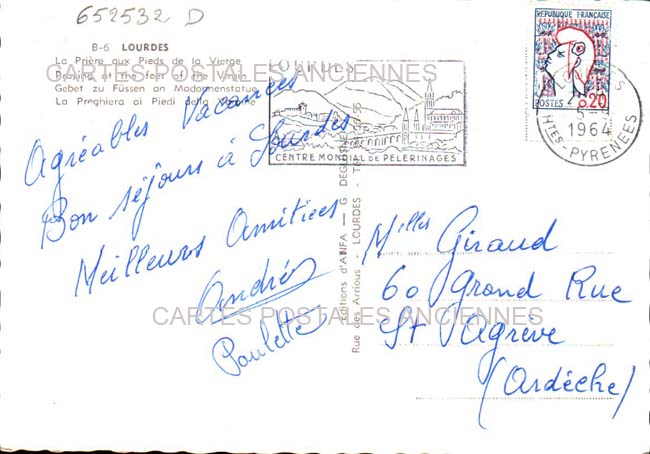 652532 D
B-6 LOURDES
La Prière aux Pieds de la Vierge
Praying at the feet of the Virgin
Gebet zu Füssen an Madonnenstatue
La Preghiera ai Piedi della Vergine
CARTES POSTALES ANCIENNES
LOURDES
CENTRE MONDIAL DE PELERINAGES
REPUBLIQUE FRANÇAISE
POSTES 0,20
1964
HTES-PYRENEES
Agréables Vacances
Bon séjours à Lourdes
Meilleures Amitiées
Andrée
Paulette
Editions d'ART A — G.
Rue des Arrious - LOURDES - 
Melles Giraud
60 Grand Rue
St Agrève
(Ardèche)
CARTES POSTALES ANCIENNES